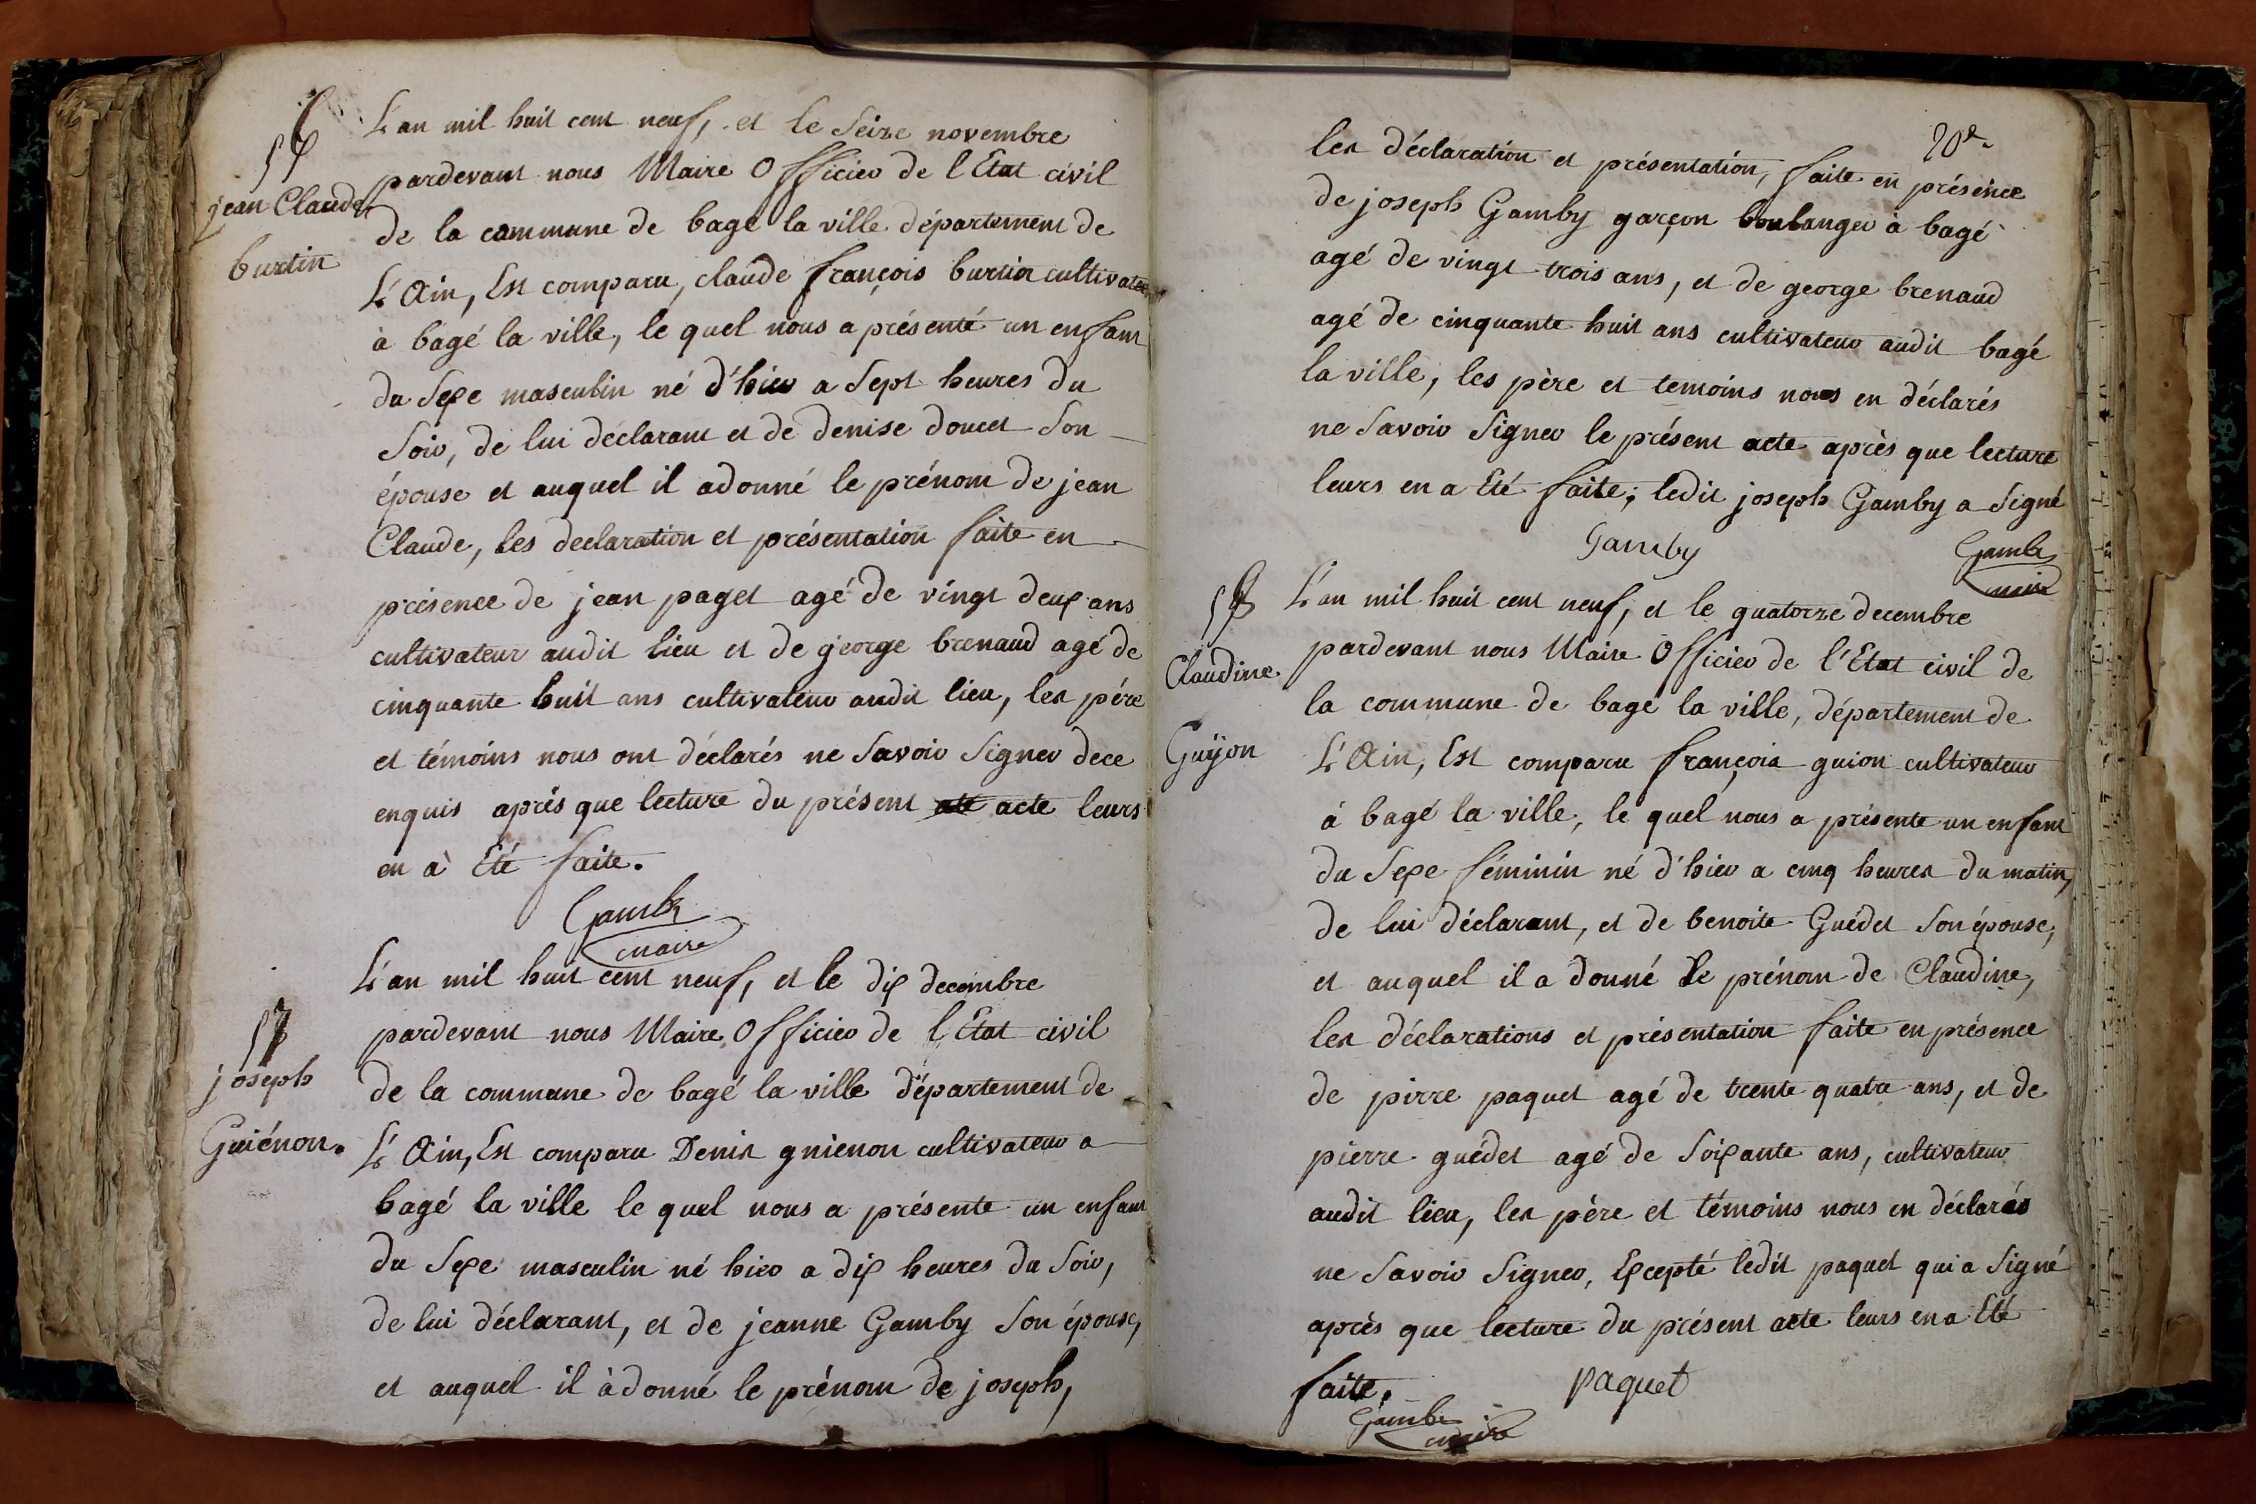 L'an mil huit cent neuf, et le Seize novembre
pardevant nous Maire Officier de l'Etat civil
jean Claude
de la commune de bagé la ville département de
burtin
L'Ain, Est comparu, claude françois burtin cultivateur
à bagé la ville, le quel nous a présenté un enfant
du Sexe masculin né d'hier a Sept heures du
Soir, de lui déclarant et de denise doucet Son
épouse et auquel il a donné le prénom de jean
Claude, les declaration et présentation faite en
présence de jean paget agé de vingt deux ans
cultivateur audit lieu et de george brenaud agé de
cinquante huit ans cultivateur audit lieu, les pére
et témoins nous ont déclarés ne Savoir Signer de ce
enquis aprés que lecture du présent acte leurs
en a Eté faite.
Gambe
maire
57
joseph
Guiénon.
L'an mil huit cent neuf, et le dix decembre
pardevant nous Maire Officier de l'Etat civil
de la commune de bagé la ville département de
L'Ain, Est comparu Denis guienon cultivateur a
bagé la ville le quel nous a présente un enfant
du Sexe masculin né hier a dix heures du Soir,
de lui déclarant, et de jeanne Gamby Son épouse,
et auquel il à donné le prénom de joseph,
20e.
les déclaration et présentation, faite en présence
de joseph Gamby garçon boulanger à bagé
agé de vingt trois ans, et de george brenaud
agé de cinquante huit ans cultivateur audit bagé
la ville, les père et temoins nous en déclarés
ne Savoir Signer le présent acte après que lecture
leurs en a Eté faite; ledit joseph Gamby a Signé
Gamby Gambe
maire
58
Claudine
Guÿon
L'an mil huit cent neuf, et le quatorze decembre
pardevant nous Maire Officier de l'Etat civil de
la commune de bagé la ville, département de
L'Ain, Est comparu françois guion cultivateur
à bagé la ville, le quel nous a présente un enfant
du Sexe féminin né d'hier a cinq heures du matin,
de lui déclarant, et de benoite Guédet Son épouse,
et auquel il a donné le prénom de Claudine,
les déclarations et présentation faite en présence
de pirre paquet agé de trente quatre ans, et de
pierre guédet agé de Soixante ans, cultivateur
audit lieu, les père et témoins nous en déclarés
ne Savoir Signer, Excepté ledit paquet qui a Signé
après que lecture du présent acte leurs en a Eté
faite. paquet
Gambe
maire